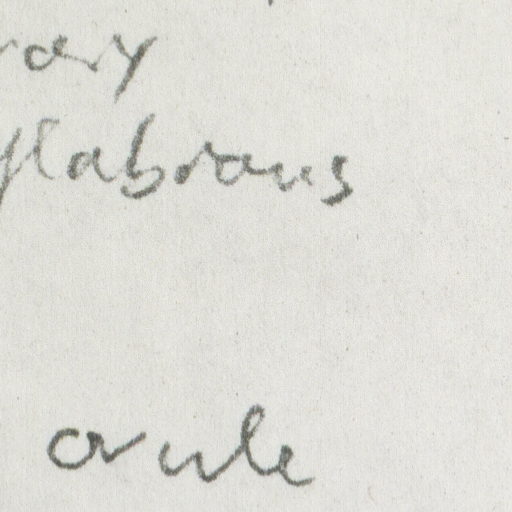 glabrous
ovule